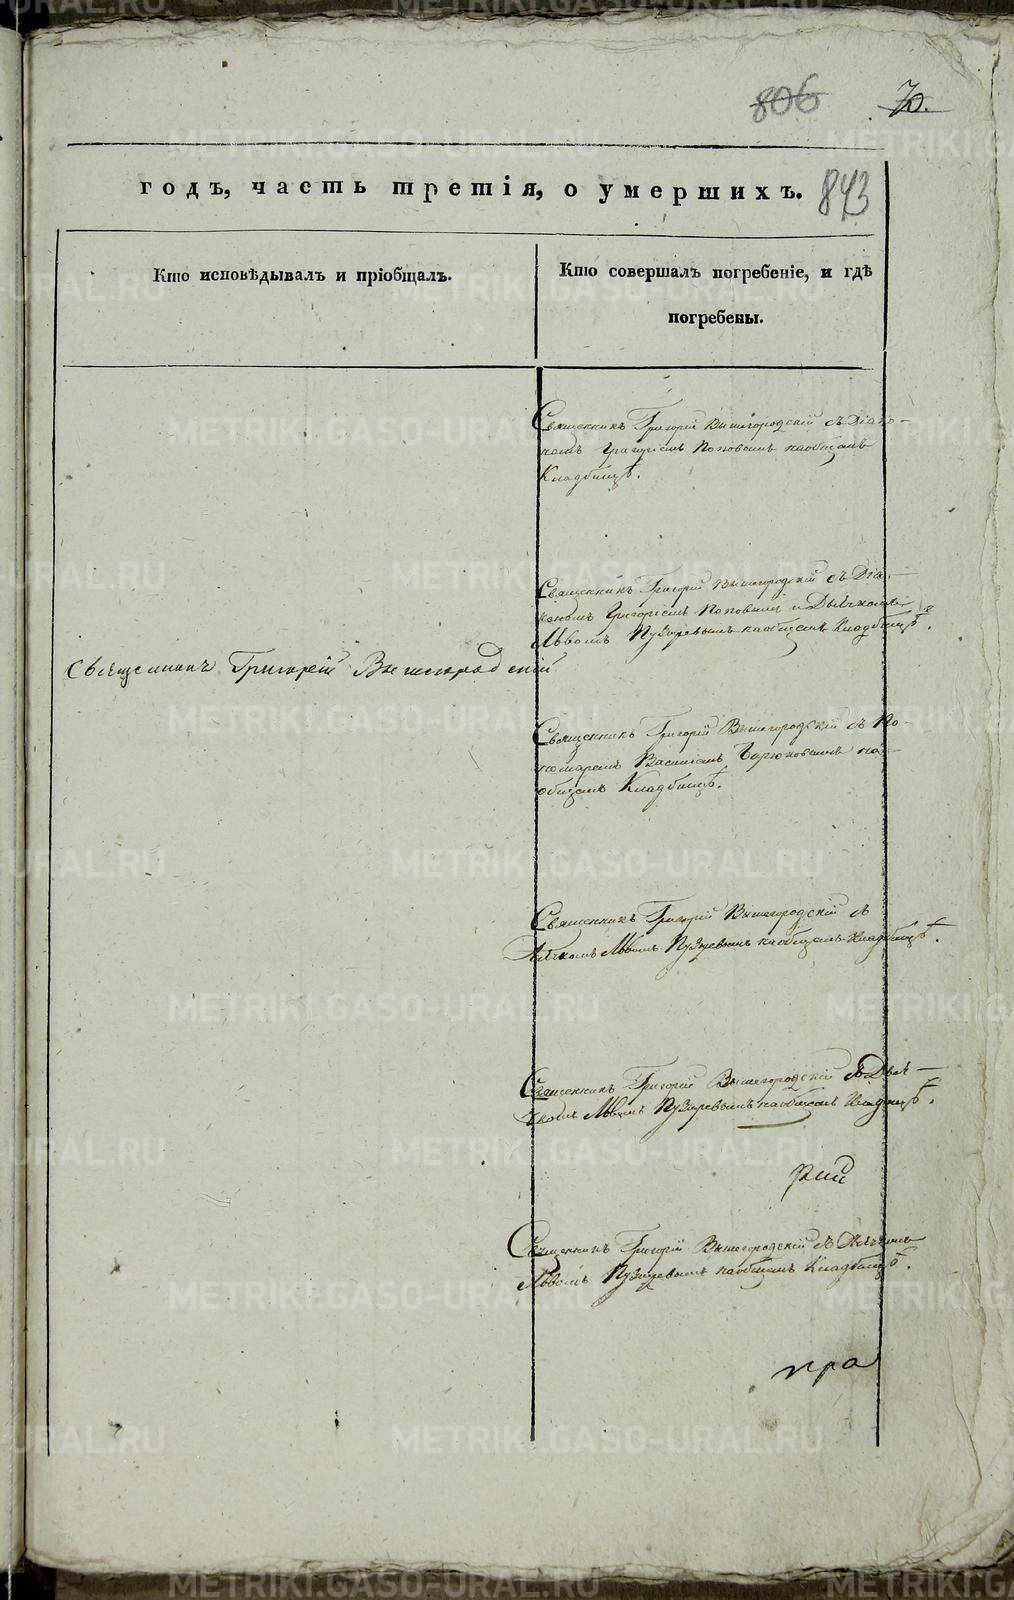 806 70.
годъ, часть третія, о умершихъ. 843
Кто исповѣдывалъ и пріобщалъ.
Кто совершалъ погребеніе, и гдѣ
погребены.
Священникъ Григорій Вышегородскій съ Діако-
номъ Григоріемъ Поповымъ наобщемъ
Кладбищѣ.
Священникъ Григорій Вышегородскій съ Діа-
кономъ Григоріемъ Поповымъ и Дьячкомъ
Львомъ Пузыревымъ наобщемъ Кладбищѣ.
Священникъ Григорій Вышегородскій
Священникъ Григорій Вышегородскій съ По-
номаремъ Василіемъ Бирюковымъ на
общемъ Кладбищѣ.
Священникъ Григорій Вышегородскій съ
Дьячкомъ Львомъ Пузыревымъ наобщемъ Кладбищѣ.
Священникъ Григорій Вышегородскій съ Дья-
чкомъ Львомъ Пузыревымъ наобщемъ Кладбищѣ.
рій
Священникъ Григорій Вышегородскій съ Дьячкомъ
Львомъ Пузыревымъ наобщемъ Кладбищѣ.
пра
METRIKI.GASO-URAL.RU